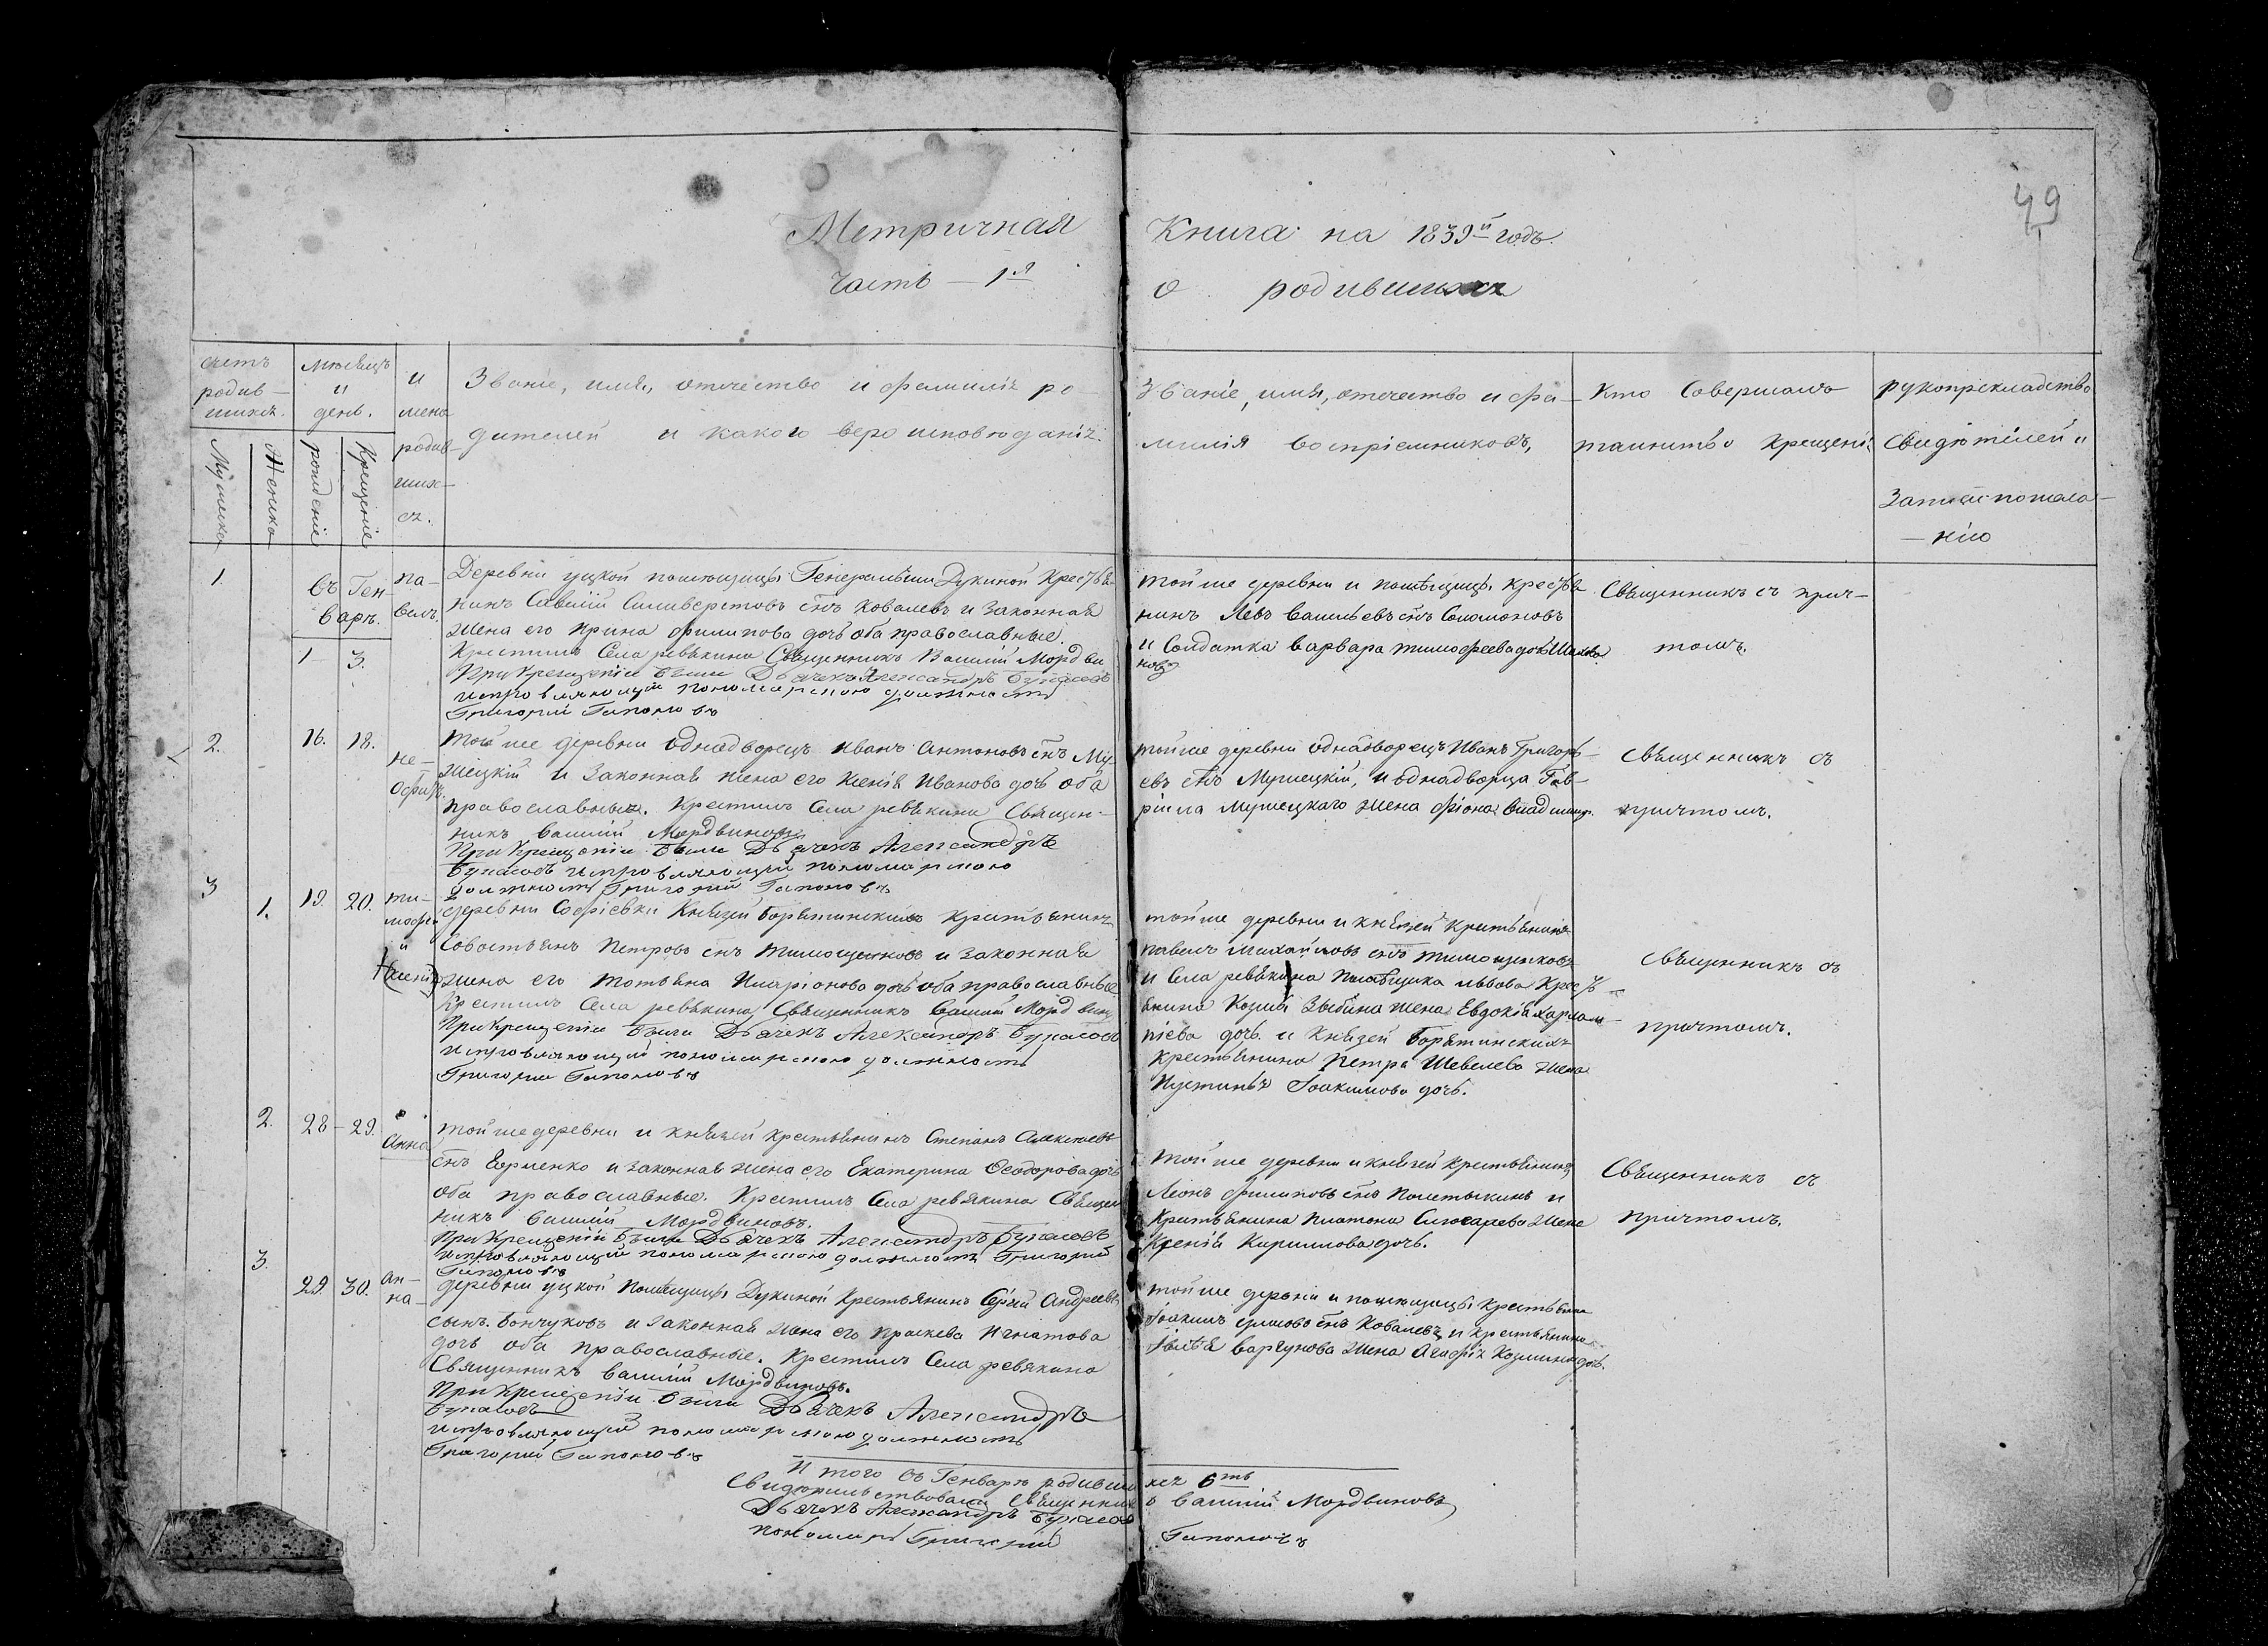 49
Метричная Книга на 1839й годъ.
Часть — 1я о родившихся
счетъ
родив—
шихся.
Мужска
Женска
мѣсяцъ
и
день.
рожденіе
Крещеніе
и
мена
родив—
ших—
ся.
Званіе, имя, отчество и фамилія ро—
дителей и какого веро исповѣданія.
Званіе, имя, отчество и фа—
милія воспріемниковъ,
Кто Совершалъ
таинство Крещенія
рукоприкладство
Свидѣтелей
записи пожела—
—нію
1.
въ Ген
варѣ.
1— 3.
па—
велъ,
Деревни уцкой помѣщицы Генеральши Дукиной Крестья
нинъ Савелій Силиверстовъ снъ Ковалевъ и Законная
жена его Ирина филипова дочь оба православные.
Крестилъ Села ревякина Священникъ Василій Мордви
При Крещеніи были Дьячекъ Александръ
исправляющій пономарскую должность
Григорій Гапоновъ
тойже деревни и помѣщицы крестья
нинъ Левъ Васильевъ снъ Соломоновъ
и Солдатка варвара тимофеева дочь
Священникъ съ прич—
томъ.
2.
16. 18.
Тойже деревни Однодворецъ иванъ Антоновъ снъ Му
жецкій и Законная жена его Ксенія Иванова дочь оба
православные. Крестилъ Села ревякина Священ—
никъ Василій Мордвиновъ
При Крещеніи были Дьячекъ Александръ
исправляющій пономарскую
должность Григорій Гапоновъ
тойже деревни однодворецъ Иванъ Григорь—
евъ снъ Мужецкій, и однодворца Гав—
ріила Мужецкаго жена
Священникъ съ
причтомъ.
3
1.
19. 20.
ти—
мофей
и
деревни Софіевки Князей Борятинскихъ крестьянинъ
Совостьянъ Петровъ снъ Тимощенковъ и законная
жена его Тотьяна Иларіонова дочь оба православные
Крестилъ Села ревякина Священникъ Василій Мордвин
При Крещеніи были Дьячекъ Александръ
исправляющій пономарскую должность
Григорій Гапоновъ
тойже деревни и князей крестьянинъ
павелъ Михайловъ снъ тимощенковъ
и Села ревякина Помѣщика львова Кресть—
янина Козмы Зыбина жена Евдокія
дочь. и Князей Борятинскихъ
крестьянина Петра Шевелева жена
Іоакимова дочь.
Священникъ съ
причтомъ.
2.
28—29.
Анна
тойже деревни и князей крестьянинъ Степанъ Алексеевъ
снъ Ефременко и законная жена его Екатерина Ѳеодорова дочь
оба православные. Крестилъ Села ревякина Священ
никъ Василій Мордвиновъ.
При Крещеніи были Дьячекъ Александръ
исправляющій пономарскую должность Григорій
Гапоновъ
Тойже деревни и князей крестьянинъ
Леонъ филиповъ снъ и
Крестьянина платона жена
Ксенія Кирилловa дочь.
Священникъ съ
причтомъ.
3.
29. 30.
Ан—
на—
деревни уцкой Помѣщицы Дукиной Крестьянинъ Сергій Андреевъ
сынъ. Бончуковъ и законная жена его Праскева Игнатова
дочь оба православные. Крестилъ Села ревякина
Священникъ Василій Мордвиновъ.
При Крещеніи были Дьячекъ Александръ
исправляющій пономарскую должность
Григорій Гапоновъ
тойже деревни и помѣщицы крестьянинъ
Іоакимъ снъ Ковалевъ и крестьянина
жена Агафія Козмина дочь.
Итого въ Генварѣ родившихся 6ть
Свидѣтельствовали Священникъ Василій Мордвиновъ
Дьячекъ Александръ
пономарь Григорій Гапоновъ